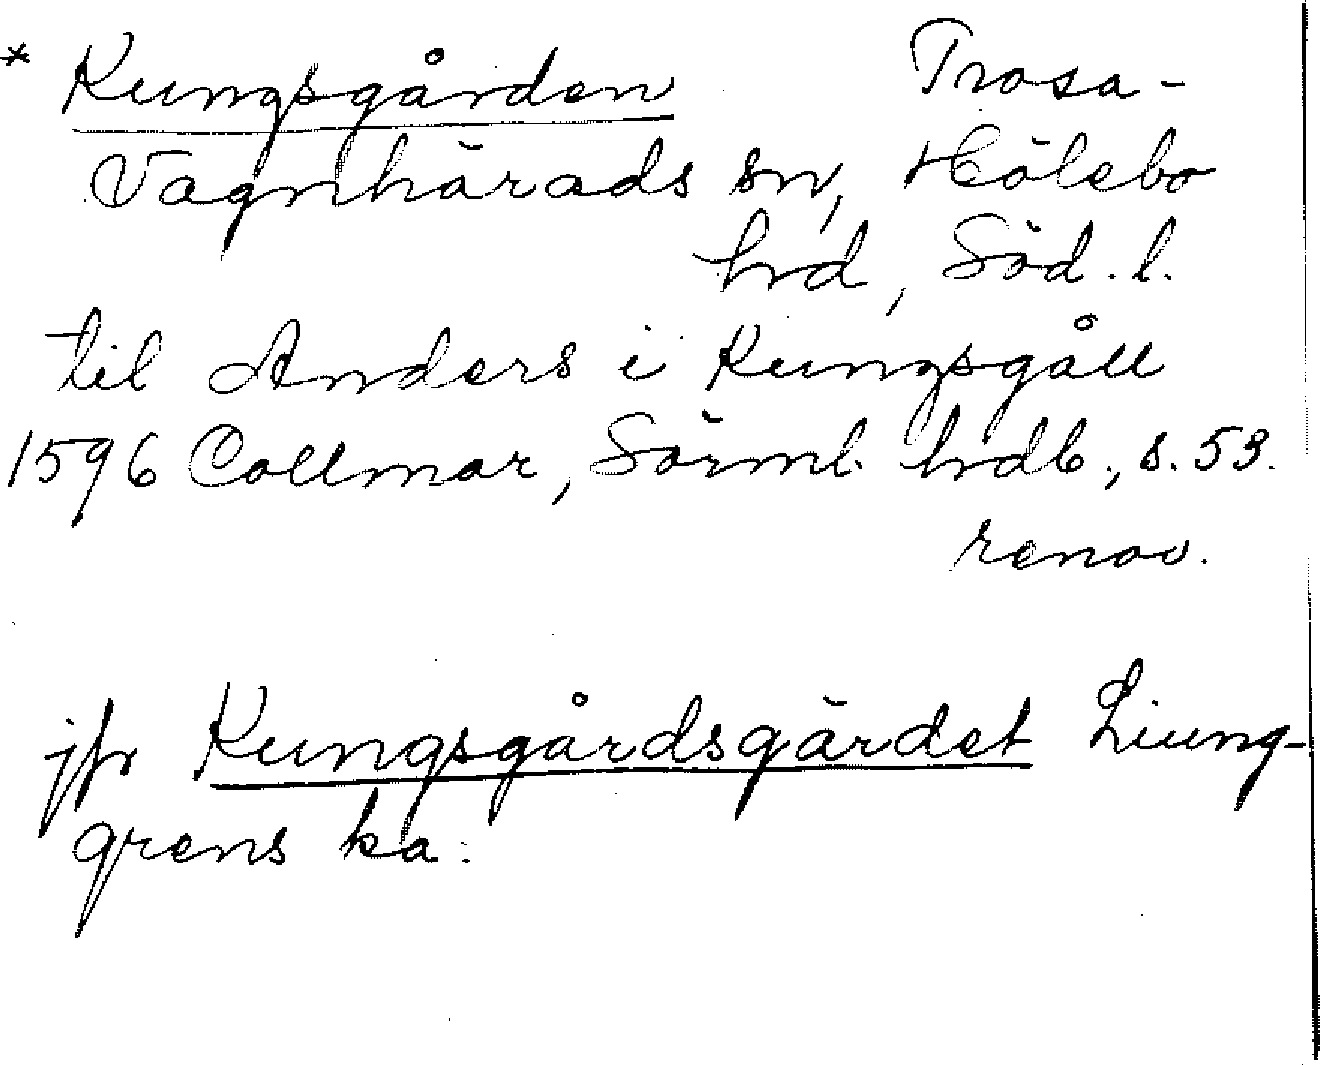 * Kungsgården Trosa-
Vagnhärads sn, Hölebo
hrd, Söd. l.
til Anders i Kungsgåll
1596 Collmar, Sörml. hrdb., s. 53.
renov.
jfr Kungsgårdsgärdet Liung-
grens ka.